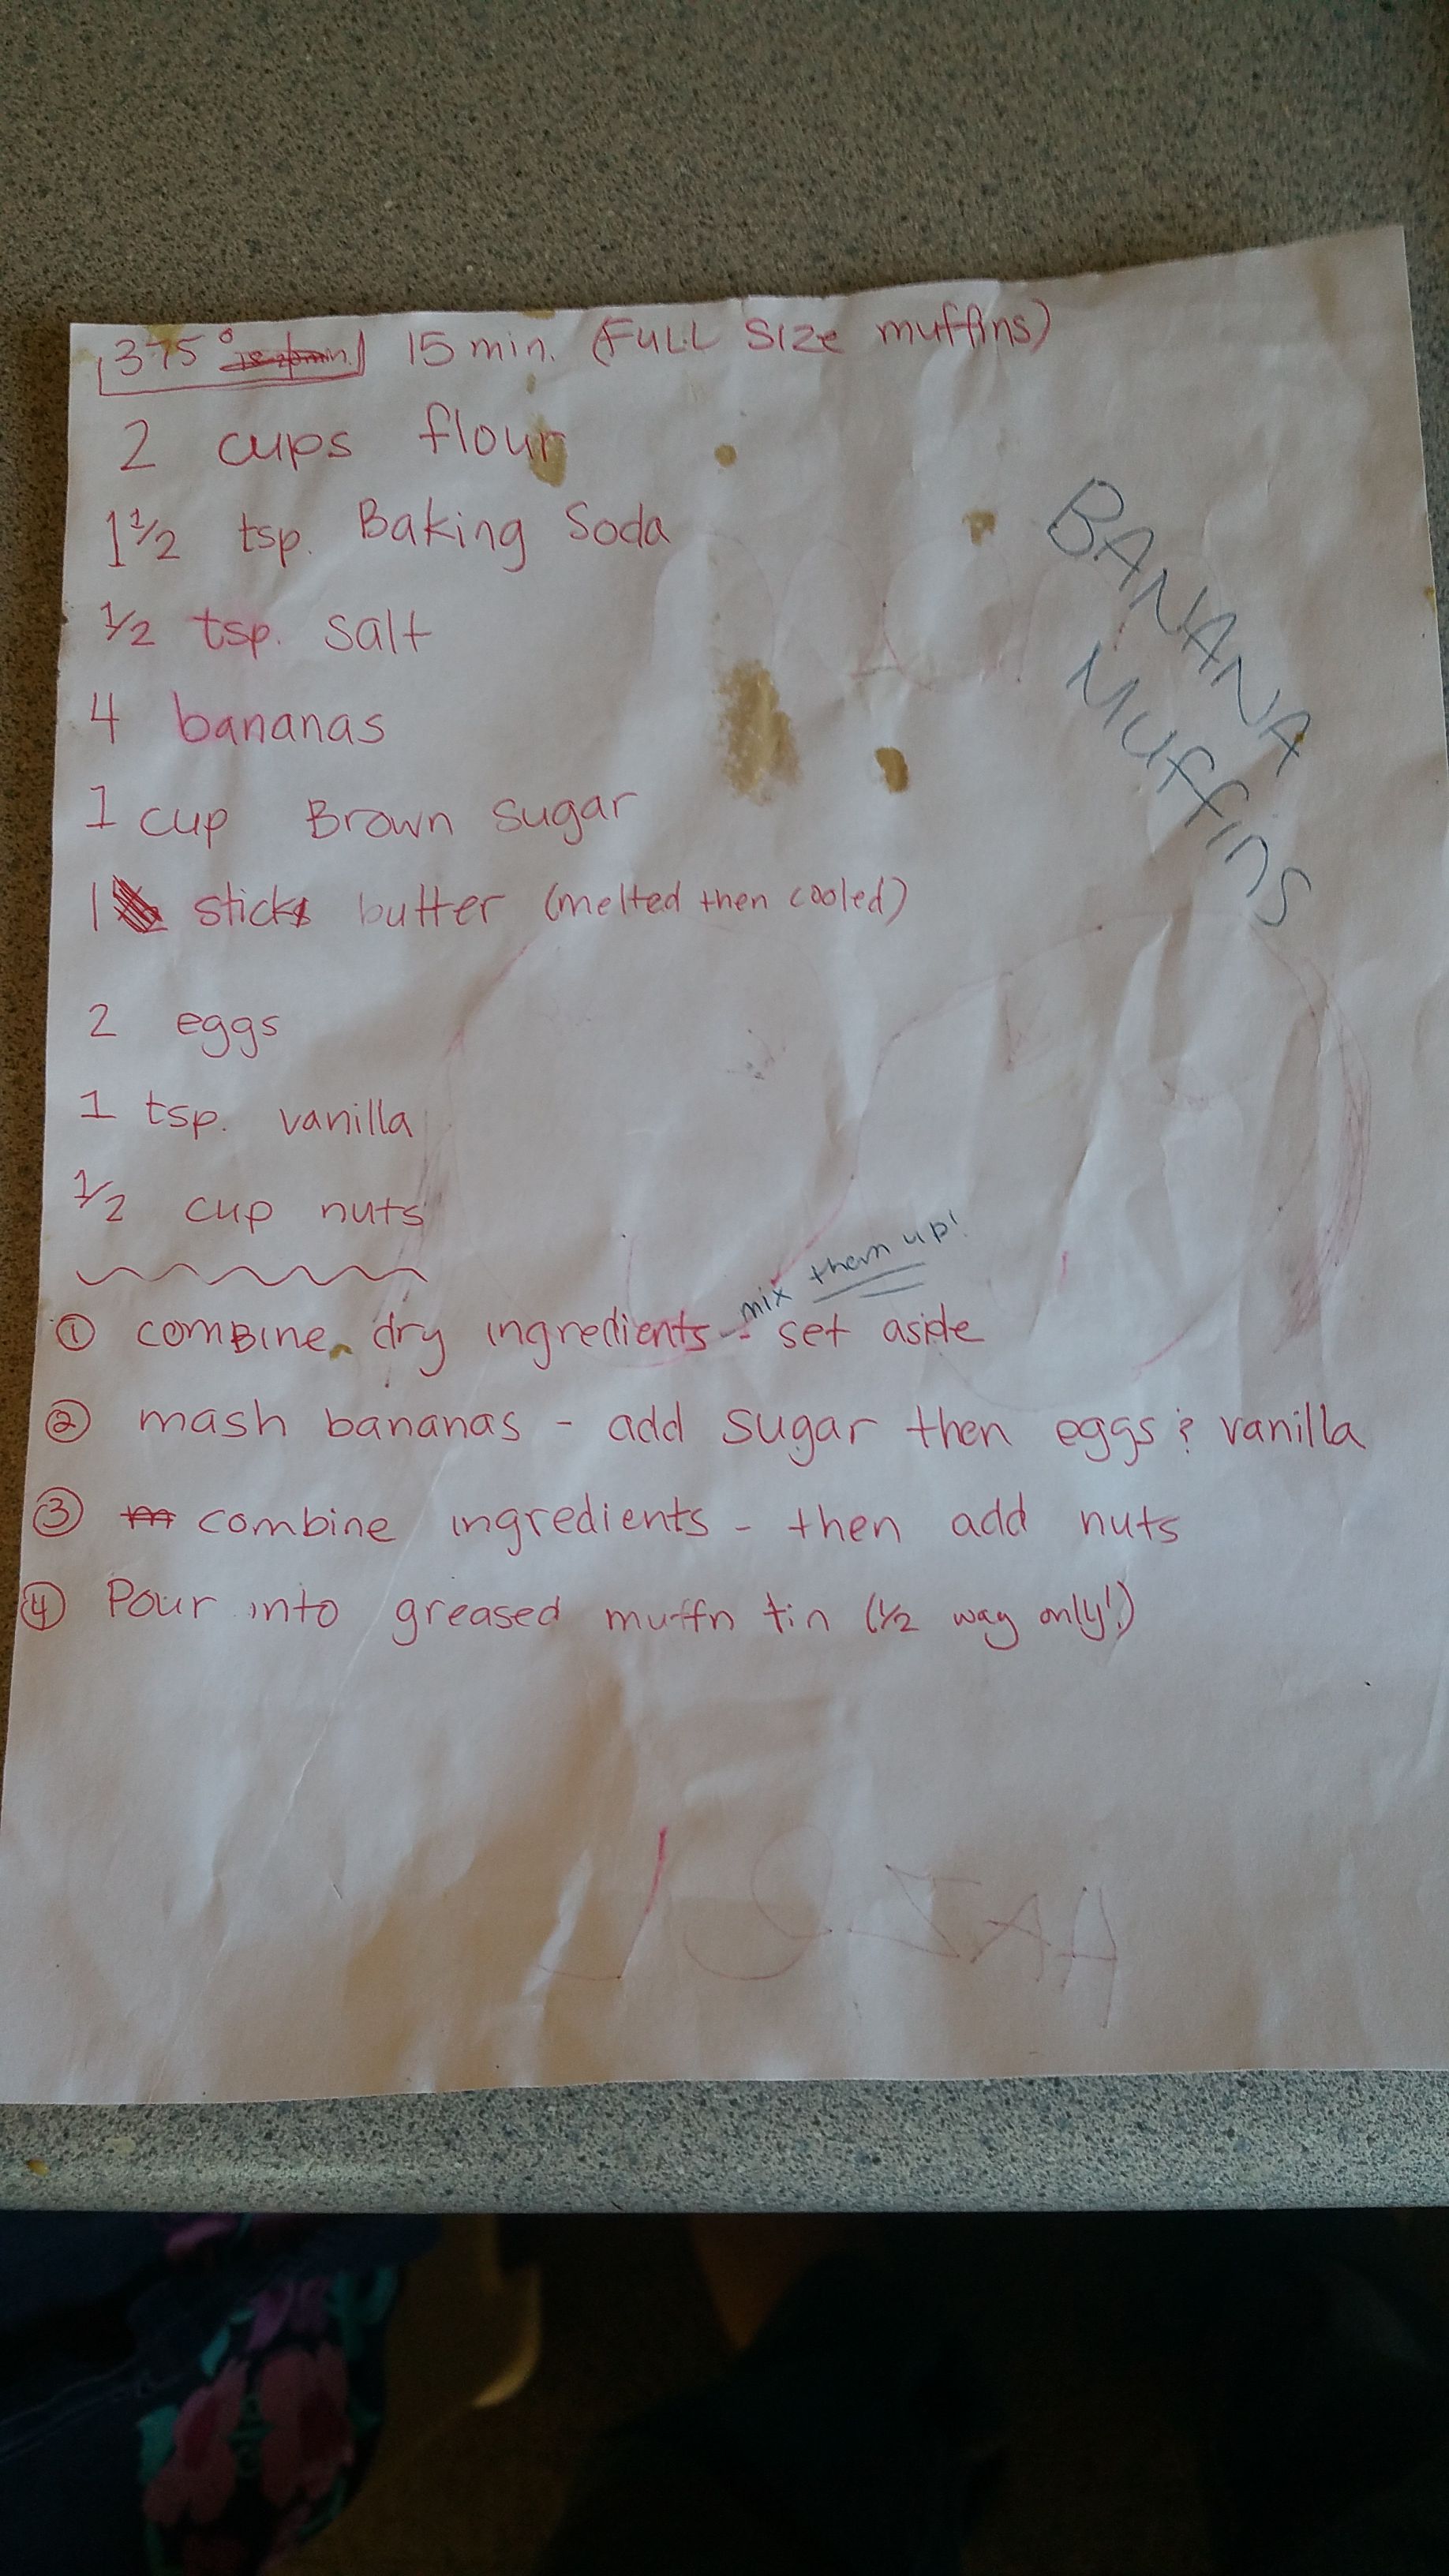 375° 15 min. (FULL SIZE muffins)
2 cups flour
1 1/2 tsp. Baking Soda
1/2 tsp. salt
4 bananas
1 cup Brown sugar
1 stick butter (melted then cooled)
2 eggs
1 tsp. vanilla
1/2 cup nuts
BANANA
Muffins
mix them up!
① combine dry ingredients - set aside
② mash bananas - add sugar then eggs & vanilla
③ combine ingredients - then add nuts
④ Pour into greased muffn tin (1/2 way only!)